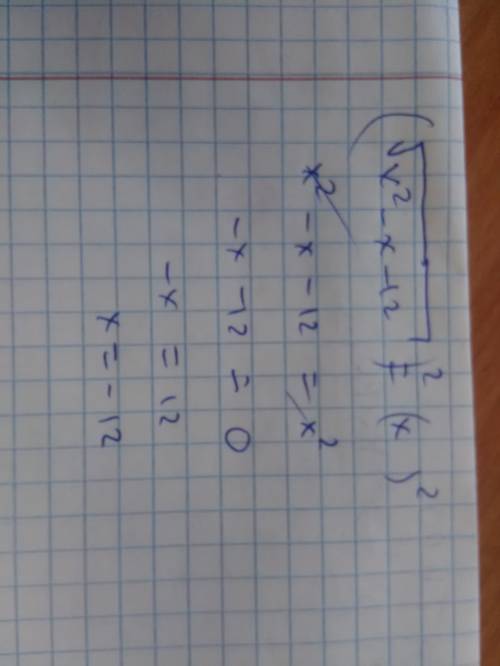 (√x² - x - 12)² = (x)²
x² - x - 12 = x²
-x - 12 = 0
-x = 12
x = -12